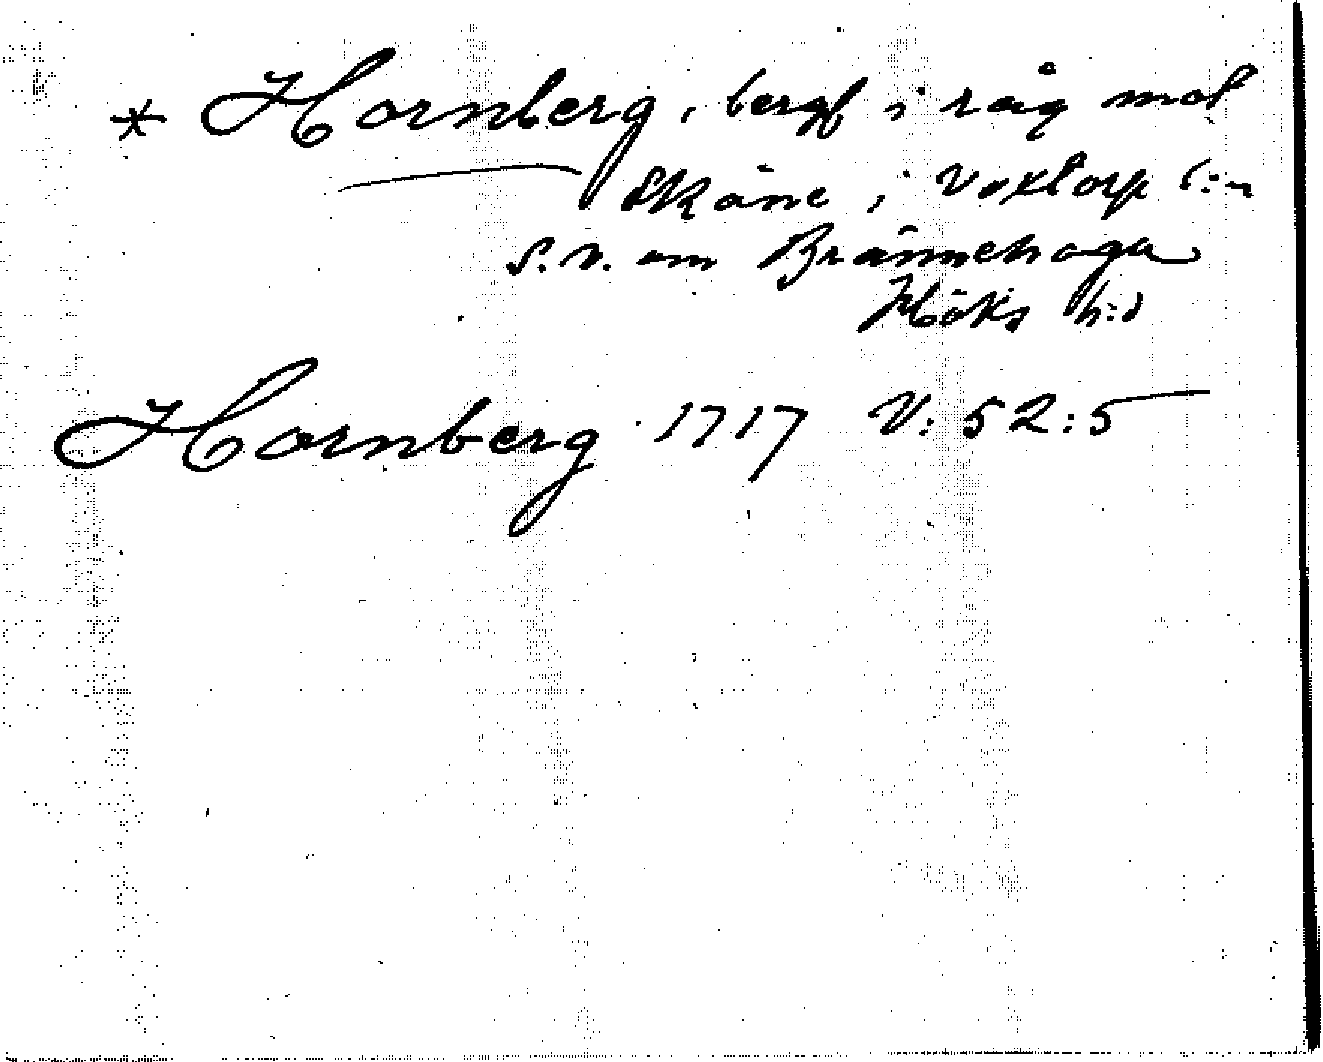 * Hornberg, bergf i råg mot
Skåne i Voxtorp l:n
S.V. om Brännehaga
Höks h:d
Hornberg 1717 V: 52:5